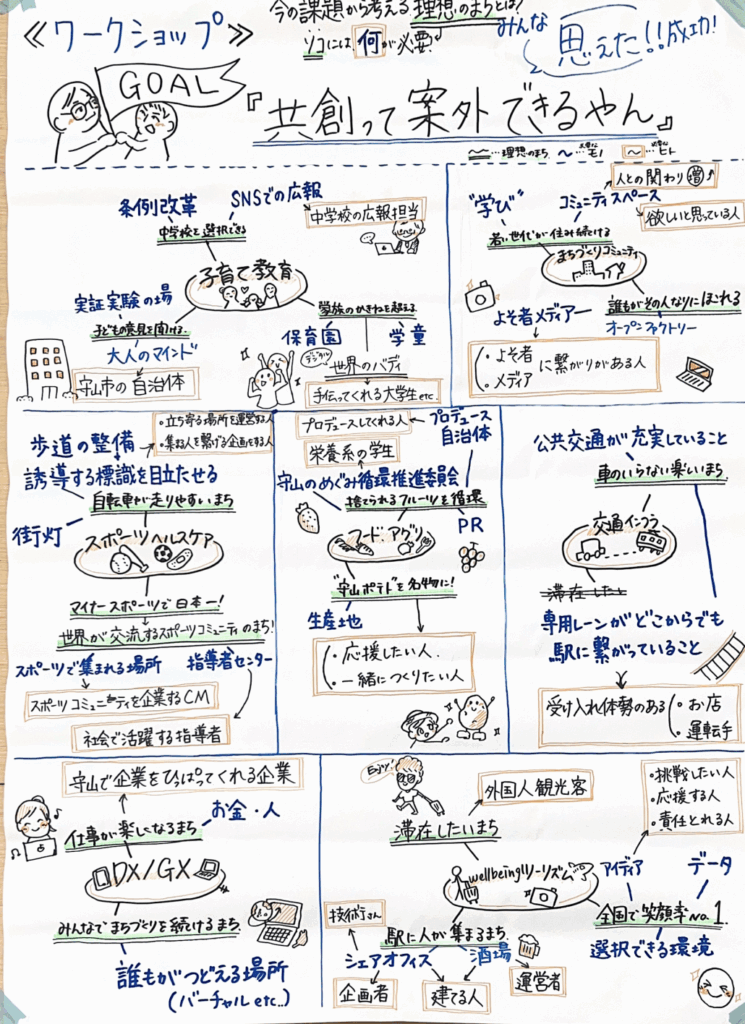 今の課題から考える理想のまちとは?
ソコには何が必要?
みんな
思えた!!成功!
≪ワークショップ≫
GOAL
『共創って案外できるやん』
〜…理想のまち 〜…モノ 〜…ヒト
条例改革
SNSでの広報
中学校を選択できる
中学校の広報担当
子育て教育
実証実験の場
子どもの意見を聞ける
大人のマインド
守山市の自治体
学族のかきねを越える
保育園
学童
デジタル
世界のバディ
手伝ってくれる大学生etc.
"学び"
コミュニティスペース
人との関わり 増
欲しいと思っている人
若い世代が住み続ける
まちづくりコミュニティ
誰もがその人なりにほれる
オープンファクトリー
よそ者メディアー
・よそ者
・メディア
に繋がりがある人
歩道の整備
・立ち寄る場所を運営する人
・集まる人を繋げる企画をする人
誘導する標識を目立たせる
自転車が走りやすいまち
街灯
スポーツヘルスケア
マイナースポーツで日本一!
世界が交流するスポーツコミュニティのまち!
スポーツで集まれる場所
指導者センター
スポーツコミュニティを企業するCM
社会で活躍する指導者
プロデュースしてくれる人
プロデュース
自治体
栄養系の学生
守山のめぐみ循環推進委員会
捨てられるフルーツを循環
フード・アグリ
PR
"守山ポテト"を名物に!
生産地
・応援したい人
・一緒につくりたい人
公共交通が充実していること
車のいらない楽しいまち
交通インフラ
滞在したい
専用レーンがどこからでも
駅に繋がっていること
受け入れ体勢のある
・お店
・運転手
守山で企業をひっぱってくれる企業
仕事が楽しくなるまち
お金・人
DX/GX
みんなでまちづくりを続けるまち
誰もがつどえる場所
(バーチャルetc...)
Enjoy!
外国人観光客
滞在したいまち
・挑戦したい人
・応援する人
・責任とれる人
wellbeingツーリズム
アイディア
データ
全国で笑顔率no.1
選択できる環境
技術丁さん
駅に人が集まるまち
シェアオフィス
酒場
企画者
建てる人
運営者